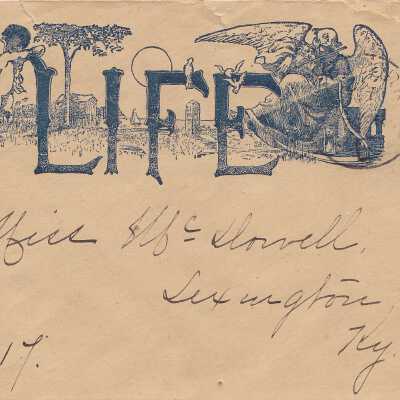 LIFE
Miss McDowell,
Lexington
Ky.
17.